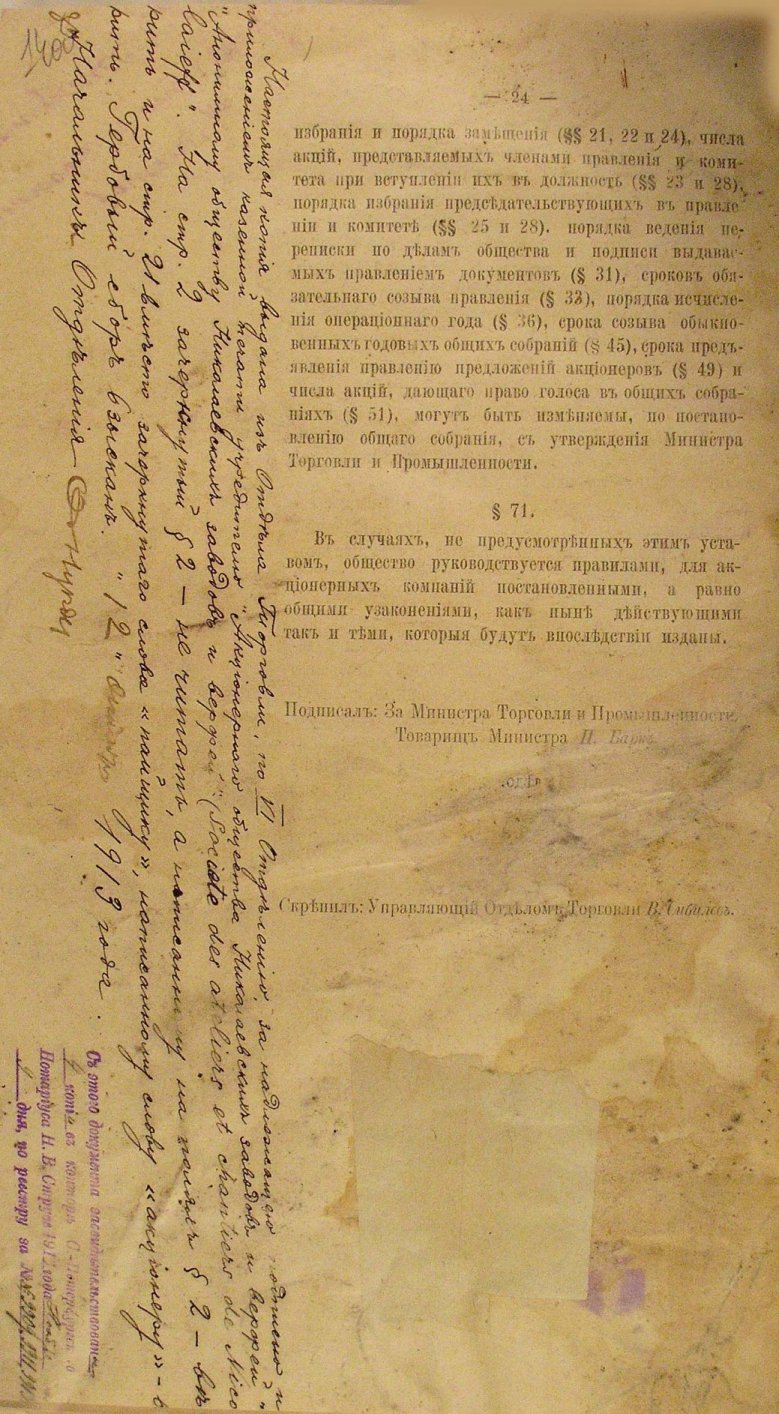 — 24 —
избранія и порядка замѣщенія (§§ 21, 22 и 24), числа
акцій, представляемыхъ членами правленія и коми-
тета при вступленіи ихъ въ должность (§§ 23 и 28),
порядка избранія предсѣдательствующихъ въ правле
ніи и комитетѣ (§§ 25 и 28). порядка веденія пе-
реписки по дѣламъ общества и подписи выдавае-
мыхъ правленіемъ документовъ (§ 31), сроковъ обя-
зательнаго созыва правленія (§ 33), порядка исчисле-
нія операціоннаго года (§ 36), срока созыва обыкно-
венныхъ годовыхъ общихъ собраній (§ 45), срока предъ-
явленія правленію предложеній акціонеровъ (§ 49) и
числа акцій, дающаго право голоса въ общихъ собра-
ніяхъ (§ 51), могутъ быть измѣняемы, по постано-
вленію общаго собранія, съ утвержденія Министра
Торговли и Промышленности.
§ 71.
Въ случаяхъ, не предусмотрѣнныхъ этимъ уста-
вомъ, общество руководствуется правилами, для ак-
ціонерныхъ компаній постановленными, а равно
общими узаконеніями, какъ нынѣ дѣйствующими
такъ и тѣми, которыя будутъ впослѣдствіи изданы.
Подписалъ: За Министра Торговли и Промышленности,
Товарищъ Министра П. Баркъ
Скрѣпилъ: Управляющій Отдѣломъ Торговли
Настоящая копія выдана изъ Отдѣла Торговли, по VI Отдѣленію, за надлежащею подписью и
приложеніемъ казенной печати учредителю "Акціонернаго общества Николаевскихъ заводовъ и верфей"
"Анонимному обществу Николаевскихъ заводовъ и верфей" (Societe des ateliers et chantiers de Nico
laieff". На стр. 2 зачеркнутый § 2 — не читать, а написанному на поляхъ § 2 — вѣ
рить и на стр. 21 вмѣсто зачеркнутаго слова «пайщику», написанному слову «акціонеру» - в
рить. Гербовый сборъ взысканъ. "12" 1913 года.
Начальникъ Отдѣленія
Съ этого документа засвидѣтельствована
копія въ конторѣ С.-Петербургскаго
Нотаріуса Н. В. Струве 191 года
дня, по реестру за №